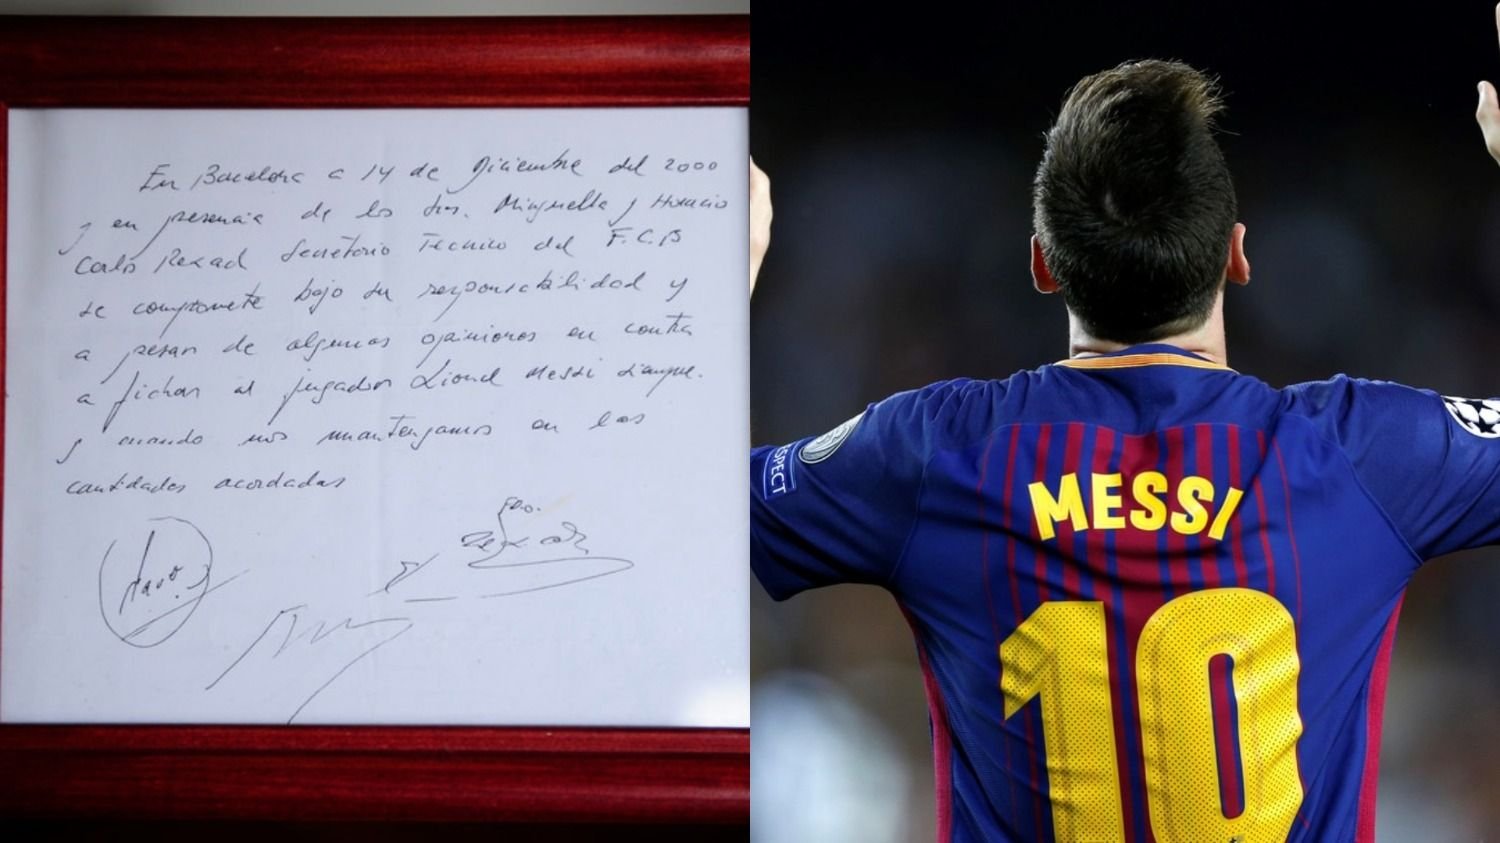 En Barcelona a 14 de Diciembre del 2000
y en presencia de los Srs. Minguella y Horacio
Carles Rexach Secretario Tecnico del F.C.B
se compromete bajo su responsabilidad y
a pesar de algunas opiniones en contra
a fichar al jugador Lionel Messi siempre.
y cuando nos mantengamos en las
cantidades acordadas
RESPECT
MESSI
10